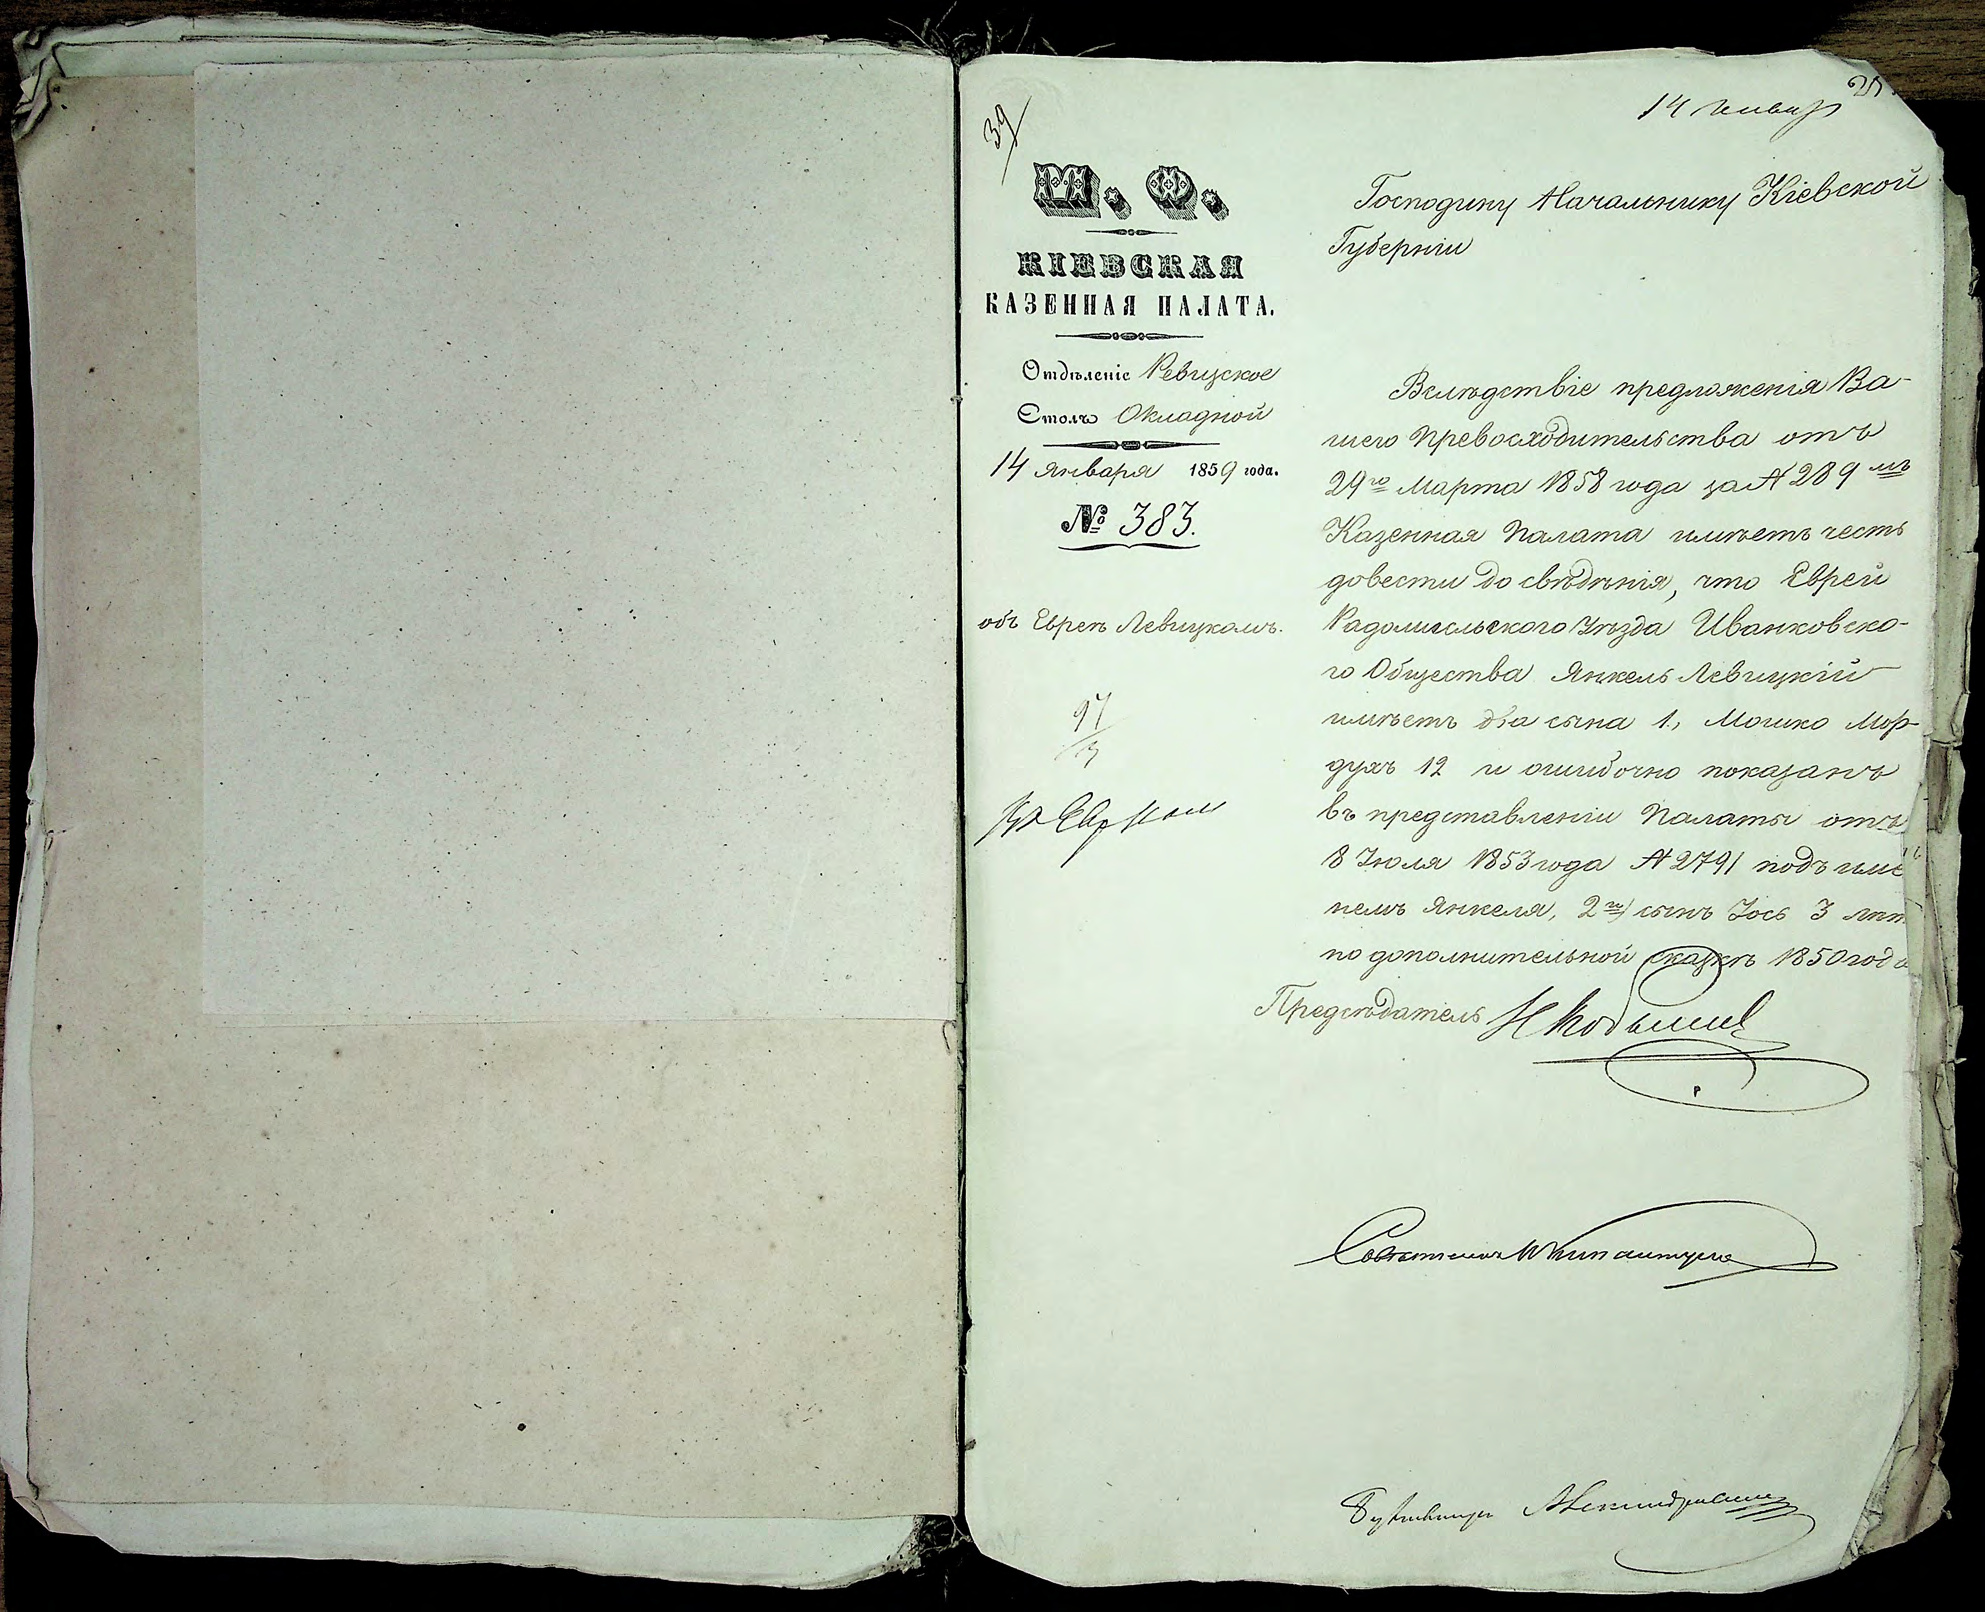 39
14 январ
М. Ф.
КІЕВСКАЯ
КАЗЕННАЯ ПАЛАТА.
Отдѣленіе Ревизское
Столъ Окладной
14 января 1859 года.
№ 383.
объ Евреѣ Левицкомъ.
97
3
Господину Начальнику Кіевской
Губерніи
Вслѣдствіе предложенія Ва-
шего Превосходительства отъ
29го Марта 1858 года за № 289 мъ
Казенная Палата имѣетъ честь
довести до свѣдѣнія, что Еврей
Радомысльского Уѣзда Иванковско-
го Общества Янкель Левицкій
имѣетъ два сына 1., Мошко Мор-
духъ 12 и ошибочно показанъ
въ представленіи Палаты отъ
8 Іюля 1853 года № 2791 подъ име
немъ Янкеля, 2й) сынъ Іось 3 лѣт
по дополнительной сказкѣ 1850 года
Предсѣдатель
Совѣтникъ